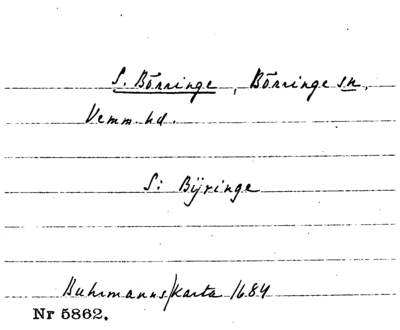 S. Börringe, Börringe sn,
Vemm. hd.
S: Bÿringe
Buhrmanns karta 1684
Nr 5862.